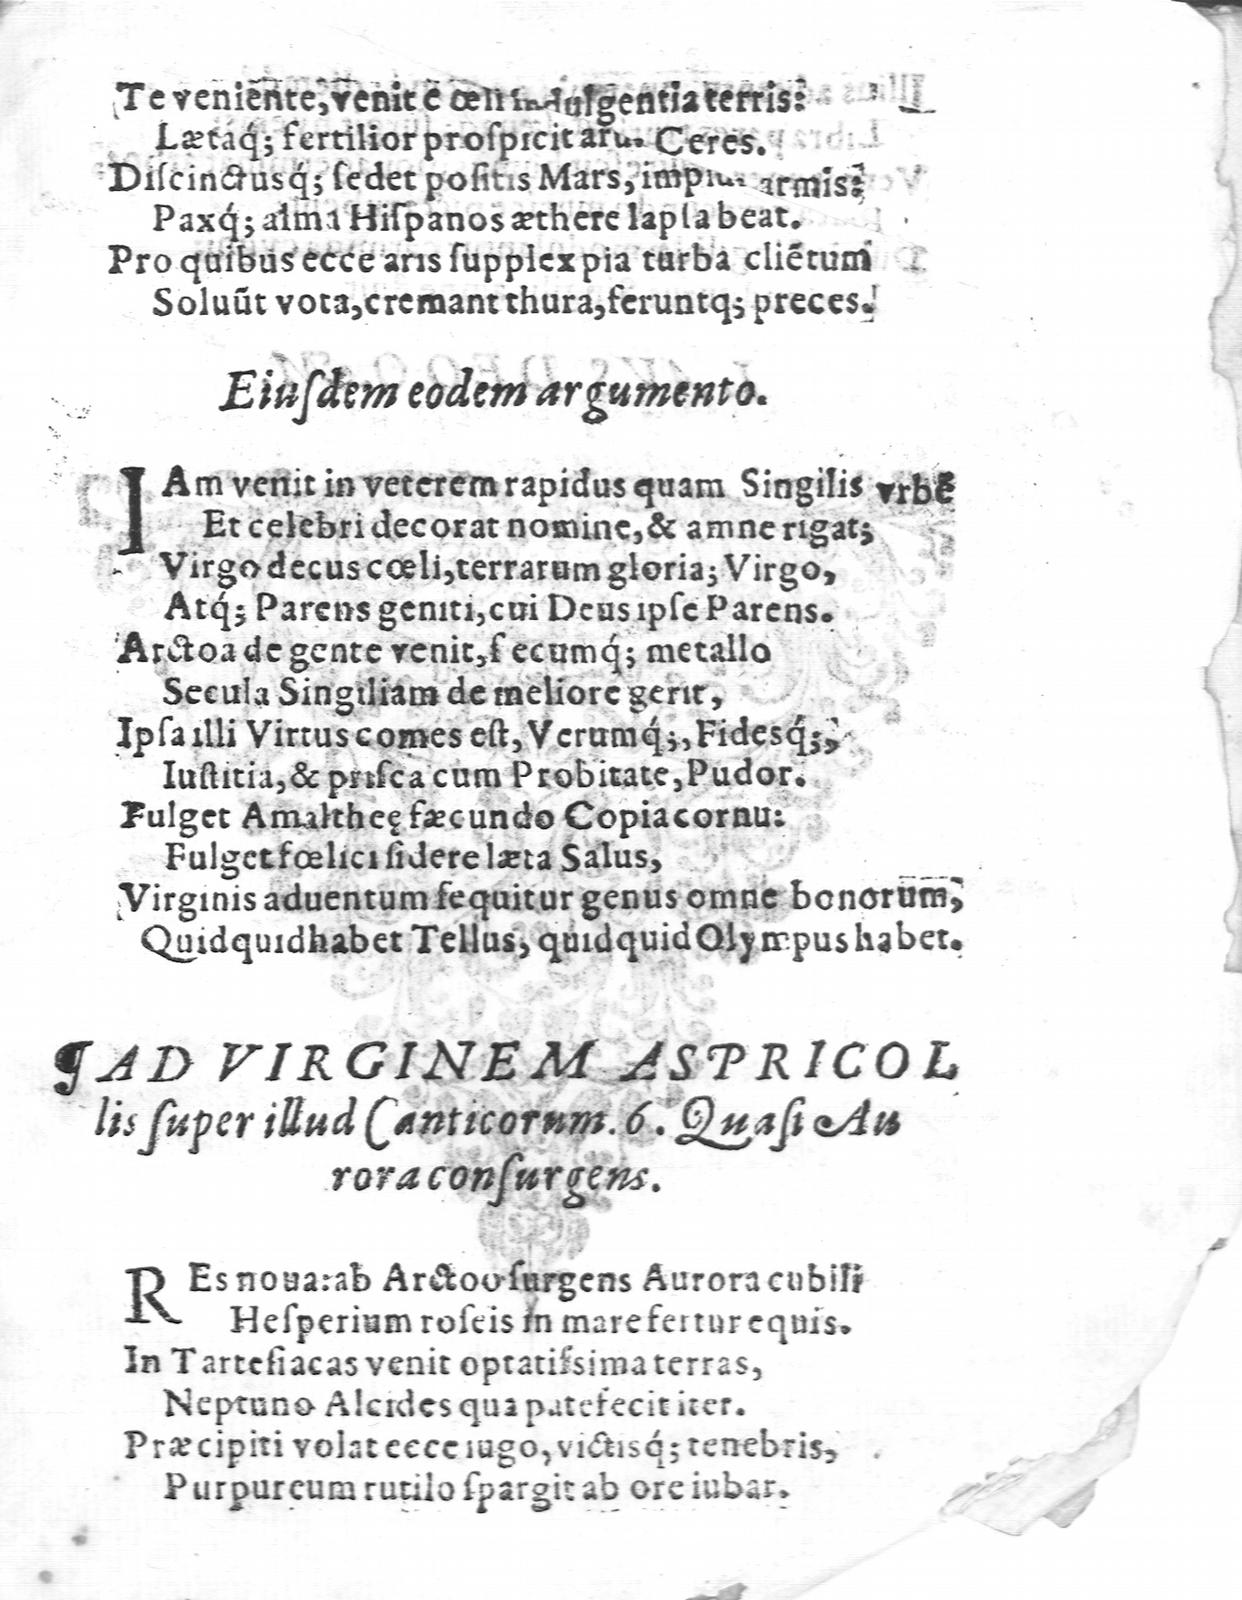 Te veniẽte, venit ẽ cœli indulgentia terris:
Lætaq́; fertilior proſpicit arua Ceres.
Diſcinctusq́; ſedet poſitis Mars, impius armis:
Paxq́; alma Hiſpanos æthere lapſa beat.
Pro quibus ecce aris ſupplex pia turba cliẽtum
Soluũt vota, cremant thura, feruntq; preces.
Eiuſdem eodem argumento.
IAm venit in veterem rapidus quam Singilis vrbẽ
Et celebri decorat nomine, & amne rigat;
Virgo decus cœli, terrarum gloria; Virgo,
Atq́; Parens geniti, cui Deus ipſe Parens.
Arctoa de gente venit, ſecumq́; metallo
Secula Singiliam de meliore gerit,
Ipſa illi Virtus comes eſt, Verumq́;, Fidesq́;,
Iuſtitia, & priſca cum Probitate, Pudor.
Fulget Amaltheę fæcundo Copia cornu:
Fulget fœlici ſidere læta Salus,
Virginis aduentum ſequitur genus omne bonorum,
Quidquid habet Tellus, quidquid Olympus habet.
¶AD VIRGINEM ASPRICOL
lis ſuper illud Canticorum. 6. Quaſi Au
rora conſurgens.
REs noua: ab Arctoo ſurgens Aurora cubili
Heſperium roſeis in mare fertur equis.
In Tarteſiacas venit optatiſsima terras,
Neptuno Alcides qua patefecit iter.
Præcipiti volat ecce iugo, victisq́; tenebris,
Purpureum rutilo ſpargit ab ore iubar.